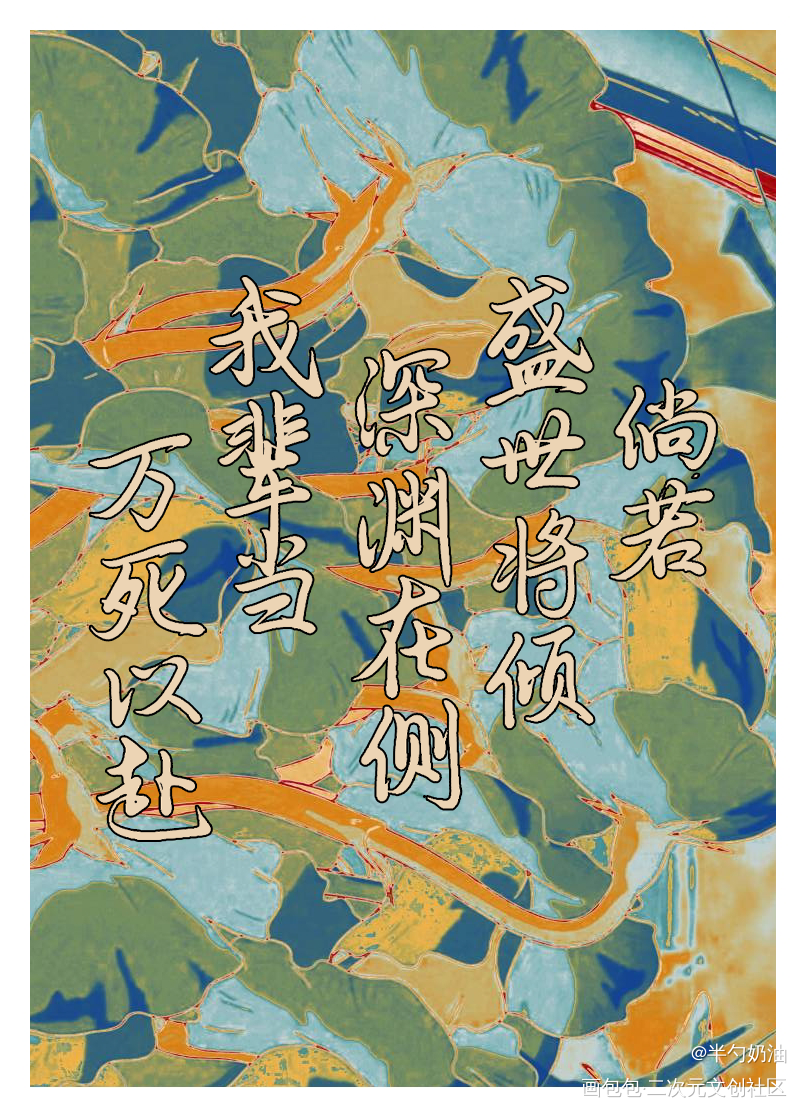 倘若
盛世将倾
深渊在侧
我辈当
万死以赴
@半勺奶油
画包包·二次元文创社区